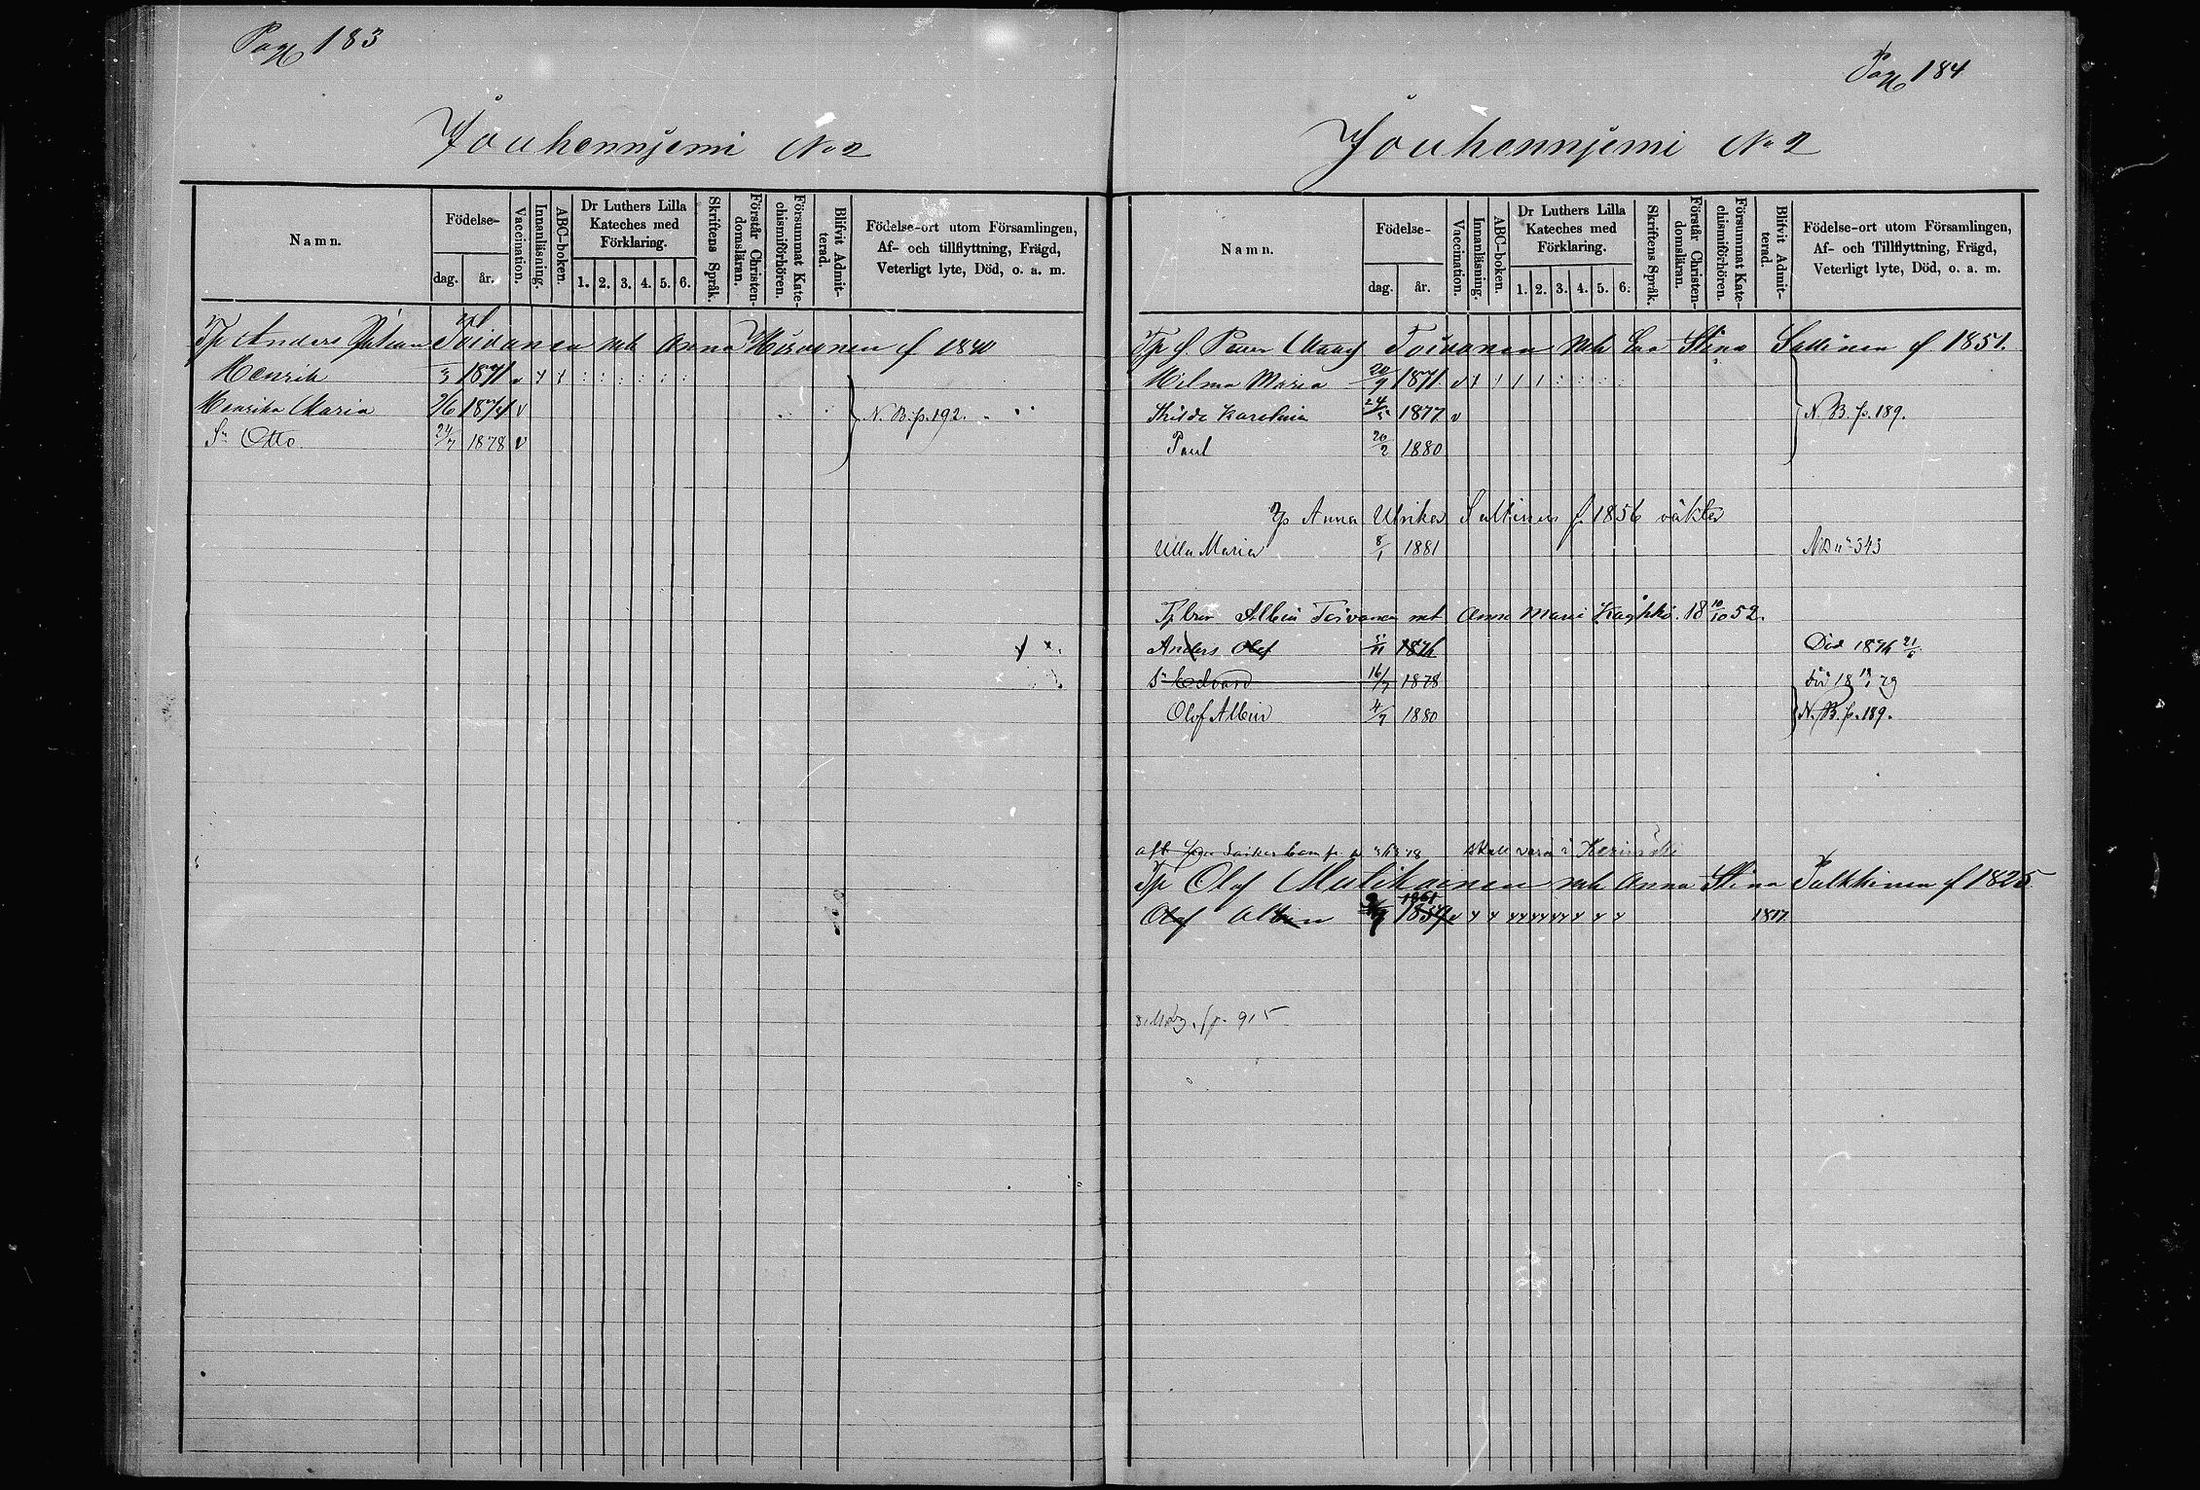 Pag 183
Jouhenniemi No 2
Namn.
Födelse-
dag.
år.
Vaccination.
Innanläsning.
ABC-boken.
Dr Luthers Lilla
Kateches med
Förklaring.
1. 2. 3. 4. 5. 6.
Skriftens Språk.
Förstår Christen-
domsläran.
Försummat Kate-
chismiförhören.
Blifvit Admit-
terad.
Födelse-ort utom Församlingen,
Af- och tillflyttning, Frägd,
Veterligt lyte, Död, o. a. m.
Tp Anders Toivanen mh Anna Hirvonen f 1840
Henrik 1871 v
Henrika Maria 2/6 1874 v N. B. p. 192.
Sn Otto 24/7 1878 v
Pag 184
Jouhenniemi No 2
Namn.
Födelse-
dag.
år.
Vaccination.
Innanläsning.
ABC-boken.
Dr Luthers Lilla
Kateches med
Förklaring.
1. 2. 3. 4. 5. 6.
Skriftens Språk.
Förstår Christen-
domsläran.
Försummat Kate-
chismiförhören.
Blifvit Admit-
terad.
Födelse-ort utom Församlingen,
Af- och Tillflyttning, Frägd,
Veterligt lyte, Död, o. a. m.
Tp Toivanen mh Eva Stina Sallinen f 1851.
Hilma Maria 20/9 1871 v
Karolina 24/5 1877 v N. B. p. 189.
Paul 20/2 1880
Anna Ulrika Sallinen f. 1856
Ulla Maria 8/1 1881 543
Albin Toivanen mt Anna Maria 18 10/10 52.
Anders Olof 1876 Död 1876
Sn Edvard 16/7 1878 Död 18 79
Olof Albin 4/7 1880 N. B. p. 189.
skall vara i
Tp Olof Mulikainen mh Anna Stina Pulkkinen f 1825
Olof Albin 1861 1859 v 1877
p. 915